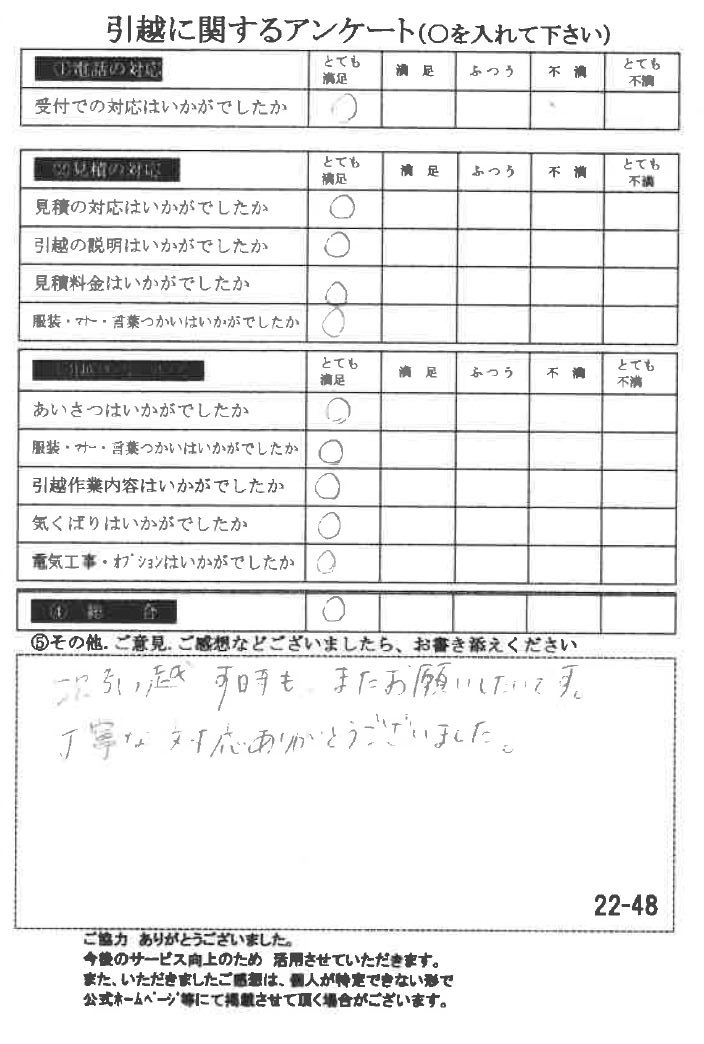 引越に関するアンケート(○を入れて下さい)
①電話の対応 とても満足 満 足 ふつう 不 満 とても不満
受付での対応はいかがでしたか ○
②見積の対応 とても満足 満 足 ふつう 不 満 とても不満
見積の対応はいかがでしたか ○
引越の説明はいかがでしたか ○
見積料金はいかがでしたか ○
服装・マナー・言葉つかいはいかがでしたか ○
とても満足 満 足 ふつう 不 満 とても不満
あいさつはいかがでしたか ○
服装・マナー・言葉つかいはいかがでしたか ○
引越作業内容はいかがでしたか ○
気くばりはいかがでしたか ○
電気工事・オプションはいかがでしたか ○
④ 総 合 ○
⑤その他.ご意見.ご感想などございましたら、お書き添えください
次引っ越す時も、またお願いしたいです。
丁寧な対応ありがとうございました。
22-48
ご協力 ありがとうございました。
今後のサービス向上のため 活用させていただきます。
また、いただきましたご感想は、個人が特定できない形で
公式ホームページ等にて掲載させて頂く場合がございます。